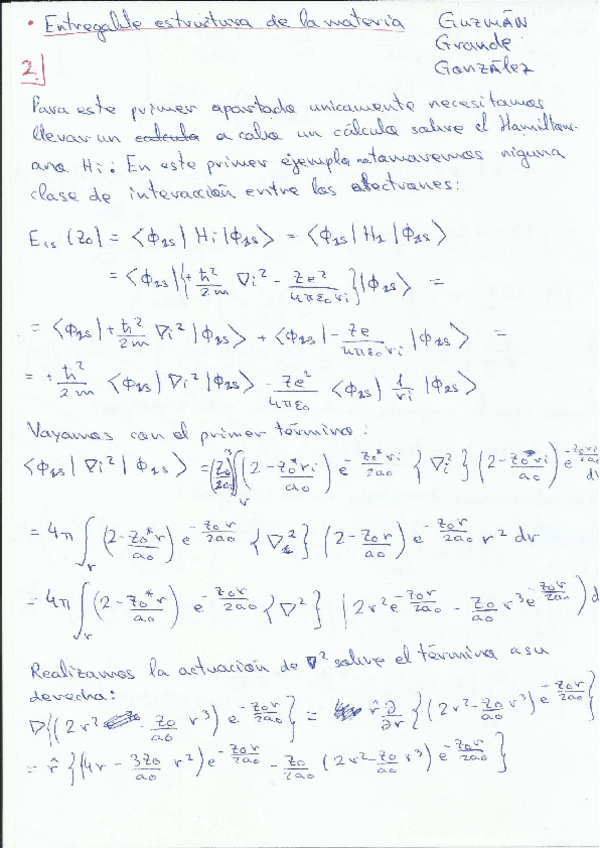 • Entregable estructura de la materia
Guzmán
Grande
González
2.|
Para este primer apartado unicamente necesitamos
llevar un calculo a cabo un cálculo sobre el Hamiltoni-
ano Hi: En este primer ejemplo no tomaremos niguna
clase de interacción entre los electrones:
E₁ₛ (Z₀) = ⟨Φ₂ₛ| Hi |Φ₂ₛ⟩ = ⟨Φ₂ₛ| H₁ |Φ₂ₛ⟩
= ⟨Φ₂ₛ| { + ħ²/2m ∇i² - Ze²/4πε₀ri } |Φ₂ₛ⟩ =
= ⟨Φ₂ₛ| + ħ²/2m ∇i² |Φ₂ₛ⟩ + ⟨Φ₂ₛ| - Ze/4πε₀ri |Φ₂ₛ⟩ =
= + ħ²/2m ⟨Φ₂ₛ| ∇i² |Φ₂ₛ⟩ - Ze²/4πε₀ ⟨Φ₂ₛ| 1/ri |Φ₂ₛ⟩
Vayamos con el primer término:
⟨Φ₂ₛ| ∇i² |Φ₂ₛ⟩ = (Z₀/2a₀)³ ∫r (2 - Z₀*ri/a₀) e^(-Z₀*ri/2a₀) { ∇i² } (2 - Z₀*ri/a₀) e^(-Z₀ri/2a₀) dr
= 4π ∫r (2 - Z₀*r/a₀) e^(-Z₀r/2a₀) { ∇² } (2 - Z₀r/a₀) e^(-Z₀r/2a₀) r² dr
= 4π ∫r (2 - Z₀*r/a₀) e^(-Z₀r/2a₀) { ∇² } (2r² e^(-Z₀r/2a₀) - Z₀/a₀ r³ e^(-Z₀r/2a₀)) d
Realizamos la actuación de ∇² sobre el término a su
derecha:
∇{(2r² - Z₀/a₀ r³) e^(-Z₀r/2a₀)} = r̂ ∂/∂r {(2r² - Z₀/a₀ r³) e^(-Z₀r/2a₀)}
= r̂ {(4r - 3Z₀/a₀ r²) e^(-Z₀r/2a₀) - Z₀/2a₀ (2r² - Z₀/a₀ r³) e^(-Z₀r/2a₀)}